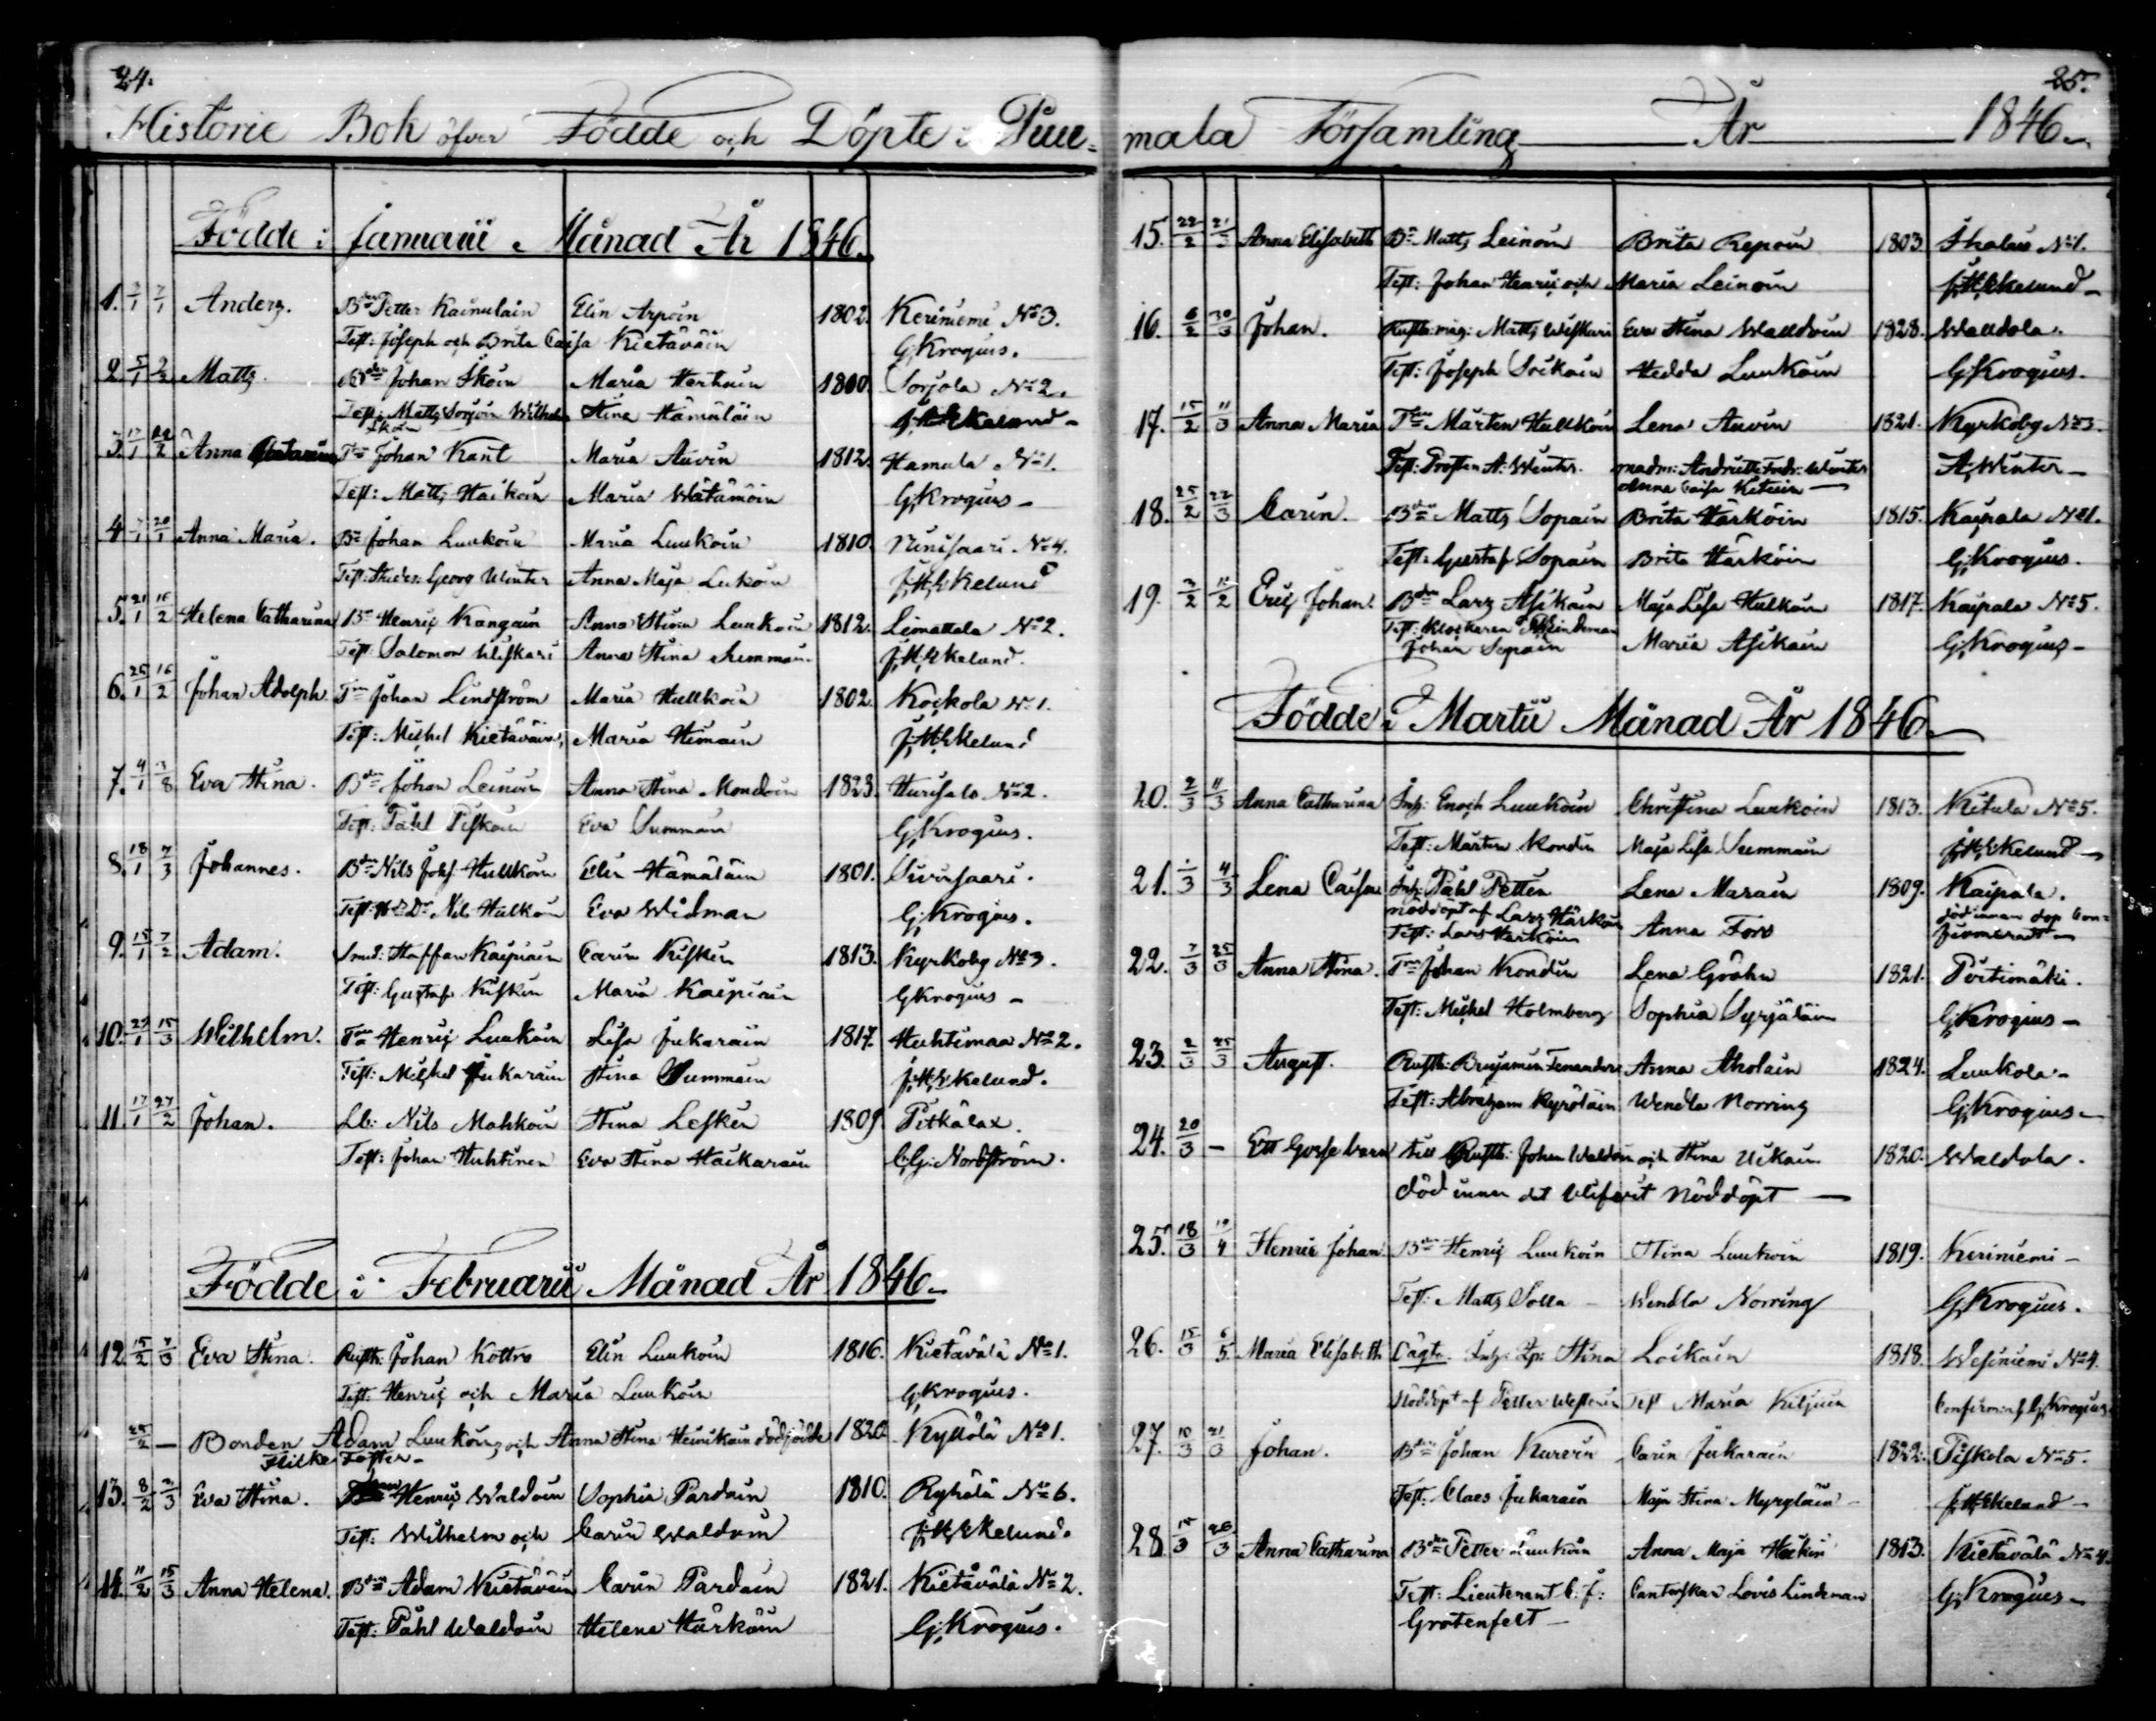 24.
Historie Bok öfver Födde och Döpte i Puu=
Födde i Januarii Månad År 1846.
1. 2/1 7/1 Anderz. Bdn Petter Kainulain Elin Arpoin 1802. Keriniemi No 3.
Test: Joseph och Brita Caisa Kietäväin G; Krogius.
2 5/1 Matts. Bdn Johan Ikoin Maria Hertuin 1800. Sorjola No 2.
Test: Matts Sorjoin Wilhelm Ikoin Stina Hämäläin J; H; Ekelund
3. Anna Johan Kant Maria Auvin 1812. Hamula No 1.
Test: Matts Haikoin Maria Wätämöin G; Krogius
4 20/1 Anna Maria. Bn Johan Luukoin Maria Luukoin 1810. Niinisaari No 4.
Test: Studer: Georg Winter Anna Maja Lukoin J; H; Ekelund
5. 21/1 16/2 Helena Catharina Bn Henric Kangain Anna Stina Luukoin 1812. Liimattala No 2.
Test: Salomon Uliskari Anna Stina J; H; Ekelund.
6. 25/1 16/2 Johan Adolph Johan Lindström Maria Hullkoin 1802. Koikola No 1.
Test: Michel Kietäväin, Maria Himain J; H; Ekelund
7. 4/1 Eva Stina. Bdn Johan Leinoin Anna Stina Mondoin 1823. Hurisalo No 2.
Test: Påhl Piskoin Eva Summain G; Krogius.
8. 18/1 7/3 Johannes. Bdn Nils Johs: Hullkoin Elin Hämäläin 1801. Siurusaari.
Test: Nils Hulkoin Eva Widman G; Krogius.
9. 15/1 7/2 Adam. Smed: Staffan Kaipiain Carin Kisken 1813. Kyrkoby No 3.
Test: Gustaf Kisken Maria Kaipiain G Krogius
10. 27/1 15/3 Wilhelm. Henric Luukoin Lisa Jukarain 1817. Huhtimaa No 2.
Test: Michel Jukarain Stina Summain J; H; Ekelund.
11. 17/1 27/2 Johan. Lb: Nils Mahkoin Stina Lesken 1809. Pitkälax.
Test: Johan Huhtinen Eva Stina Haikarain C; G; Nordström.
Födde i Februarii Månad År 1846.
12. 15/2 7/3 Eva Stina. Rusth: Johan Kottro Elin Luukoin 1816. Kietävälä No 1.
Test: Henric och Maria Luukoin G; Krogius.
25/2 — Bonden Adam Luukoins och Anna Stina Heinikain dödfödde 1820. Kyllölä No 1.
Flicke Foster.
13. 8/2 Eva Stina. Henric Waldoin Sophia Pardain 1810. Ryhälä No 6.
Test: Wilhelm och Carin Waldoin J; H; Ekelund.
14. 11/2 15/3 Anna Helena. Bdn Adam Kietäväin Carin Pardain 1821. Kietävälä No 2.
Test: Påhl Waldoin Helena Härköin G; Krogius.
25.
mala Församling År 1846.
15. 22/2 21/3 Anna Elisabeth Bn Matts Leinoin Brita Repoin 1803. Ihalus No 1.
Test: Johan Henric och Maria Leinoin J; H; Ekelund
16. 6/2 30/3 Johan. Rusth: måg: Matts Uliskari Eva Stina Walldoin 1828. Walldola.
Test: Joseph Soikain Hedda Luukoin G; Krogius.
17. 15/2 11/3 Anna Maria Mårten Hullkoin Lena Auvin 1821. Kyrkoby No 3.
Test: Prosten A: Winter. madm: Andriette Fredr: Winter A; Winter
Anna Caisa Ketuin
18. 25/2 22/3 Carin. Bdn Matts Sopain Brita Härköin 1815. Kaipala No 1.
Test: Gustaf Sopain Brita Härköin G; Krogius.
19. 12/2 Eric Johan. Bdn Larz Asikain Maja Lisa Hulkoin 1817. Kaipala No 5.
Test: Klockaren Lindeman
Johan Sopain Maria Asikain G; Krogius
Födde i Martii Månad År 1846.
20. 2/3 11/3 Anna Catharina Inh: Enoch Luukoin Christina Luukoin 1813. Kitula No 5.
Test: Mårten Kondin Maja Lisa Summain J; H; Ekelund
21. 1/3 4/3 Lena Caisa Inh: Påhl Petten Lena Marain 1809. Kaipala.
nöddöpt af Larz Härköin död innan dop Con=
Test: Lars Härköin Anna Fors firmeradt
22. 7/3 25/3 Anna Stina. Johan Kondin Lena Gröhn 1821. Poitimäki.
Test: Michel Holmberg Sophia Syrjäläin G; Krogius
23. 2/3 25/3 August. Rusth: Benjamin Fenander Anna Aholain 1824. Luukola
Test: Abraham Kyröläin Wendla Norring G; Krogius
24. 20/3 — Ett Gosse barn till Rusth: Johan Waldoin och Stina Uikain 1820. Waldola.
död innan det blifvit nöddöpt
25. 18/3 Henric Johan Bdn Henric Luukoin Stina Luukoin 1819. Keriniemi
Test: Matts Solla Wendla Norring G; Krogius.
26. 15/3 6/5 Maria Elisabeth Oägta. Inh: Stina Loikain 1818. Wesiniemi No 4.
Nöddöpt af Petter Test Maria Kiljuin Confirm: af G; Krogius
27. 10/3 21/3 Johan. Bdn Johan Kurvin Carin Jukarain 1822. Piskola No 5.
Test: Claes Jukarain Maja Stina Myryläin J; H; Ekelund
28. 15/3 26/3 Anna Catharina Bdn Petter Luukoin Anna Maja Häikiö 1813. Kietävälä No 4.
Test: Lieutenant C. J: Cantorskan Lovis Lindeman G; Krogius
Grotenfelt